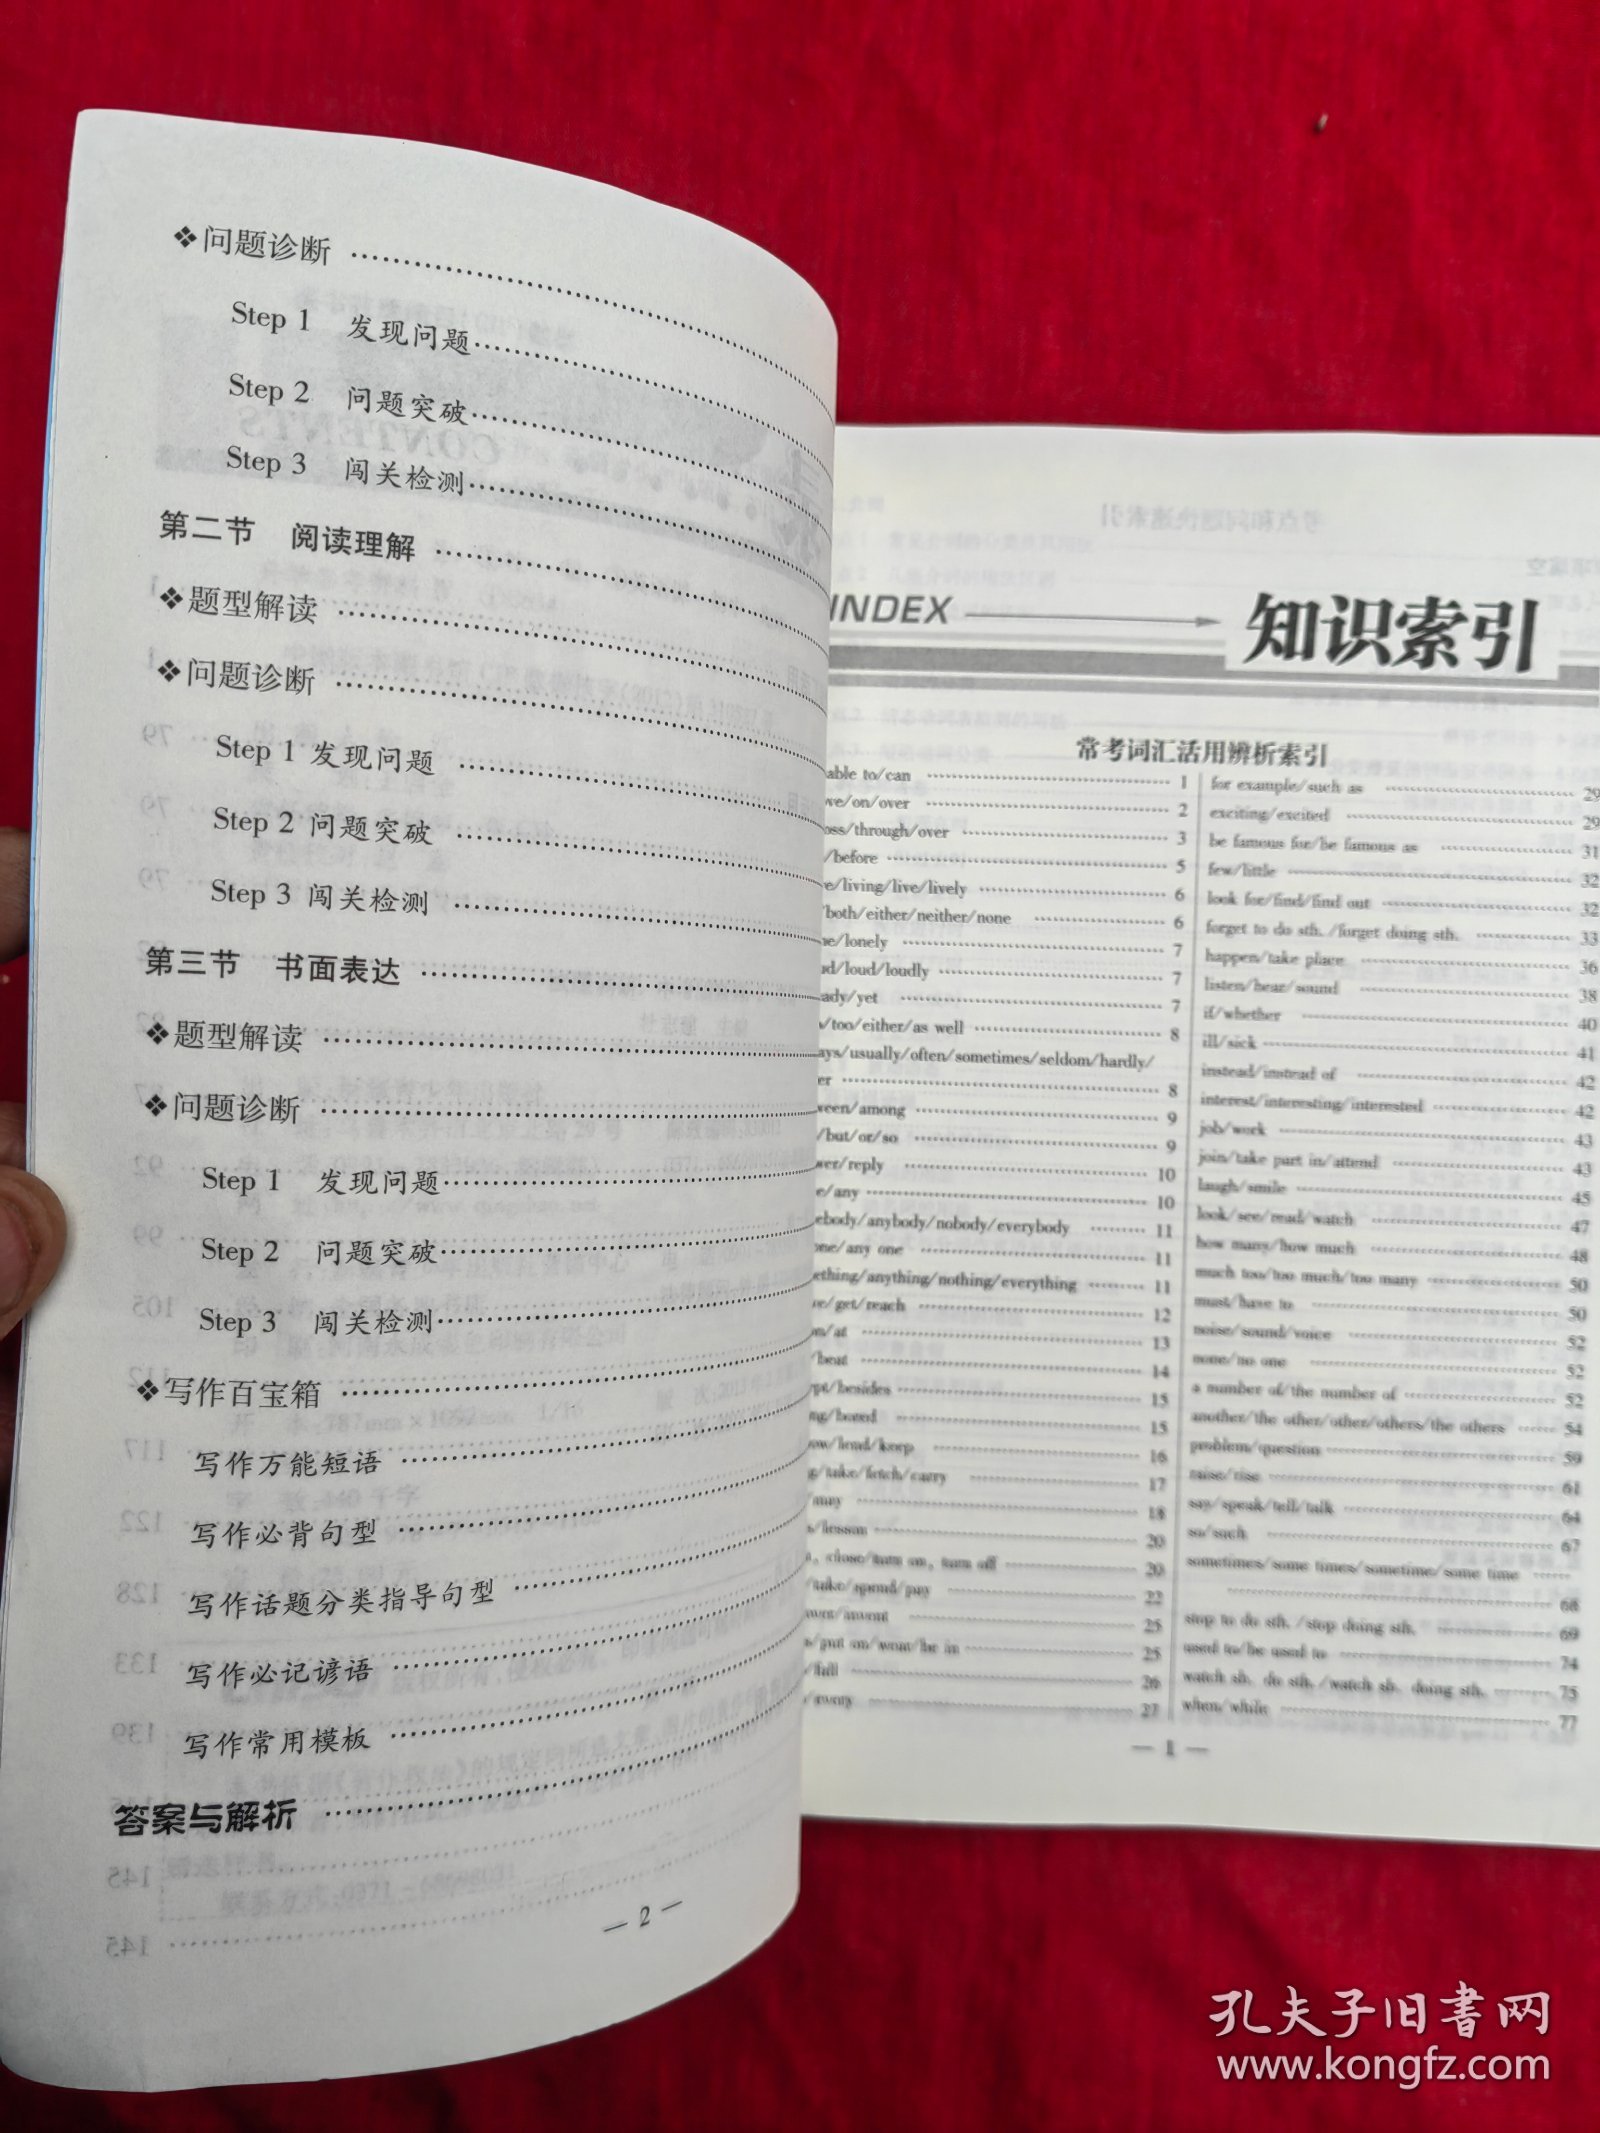 ❖问题诊断
Step 1 发现问题
Step 2 问题突破
Step 3 闯关检测
第二节 阅读理解
❖题型解读
❖问题诊断
Step 1 发现问题
Step 2 问题突破
Step 3 闯关检测
第三节 书面表达
❖题型解读
❖问题诊断
Step 1 发现问题
Step 2 问题突破
Step 3 闯关检测
❖写作百宝箱
写作万能短语
写作必背句型
写作话题分类指导句型
写作必记谚语
写作常用模板
答案与解析
— 2 —
INDEX 知识索引
常考词汇活用辨析索引
able to/can 1
/on/over 2
/through/over 3
/before 5
/living/live/lively 6
/both/either/neither/none 6
/lonely 7
/loud/loudly 7
/yet 7
/too/either/as well 8
/usually/often/sometimes/seldom/hardly/
8
/among 9
/but/or/so 9
/reply 10
/any 10
/anybody/nobody/everybody 11
/any one 11
/anything/nothing/everything 11
/get/reach 12
/at 13
/beat 14
/besides 15
/bored 15
/lend/keep 16
/take/fetch/carry 17
/may 18
/lesson 20
, close/turn on, turn off 20
/take/spend/pay 22
/invent 25
/put on/wear/be in 25
/full 26
/every 27
for example/such as 29
exciting/excited 29
be famous for/be famous as 31
few/little 32
look for/find/find out 32
forget to do sth./forget doing sth. 33
happen/take place 36
listen/hear/sound 38
if/whether 40
ill/sick 41
instead/instead of 42
interest/interesting/interested 42
job/work 43
join/take part in/attend 43
laugh/smile 45
look/see/read/watch 47
how many/how much 48
much too/too much/too many 50
must/have to 50
noise/sound/voice 52
none/no one 52
a number of/the number of 52
another/the other/other/others/the others 54
problem/question 59
raise/rise 61
say/speak/tell/talk 64
so/such 67
sometimes/some times/sometime/some time
68
stop to do sth./stop doing sth. 69
used to/be used to 74
watch sb. do sth./watch sb. doing sth. 75
when/while 77
— 1 —
孔夫子旧书网
www.kongfz.com